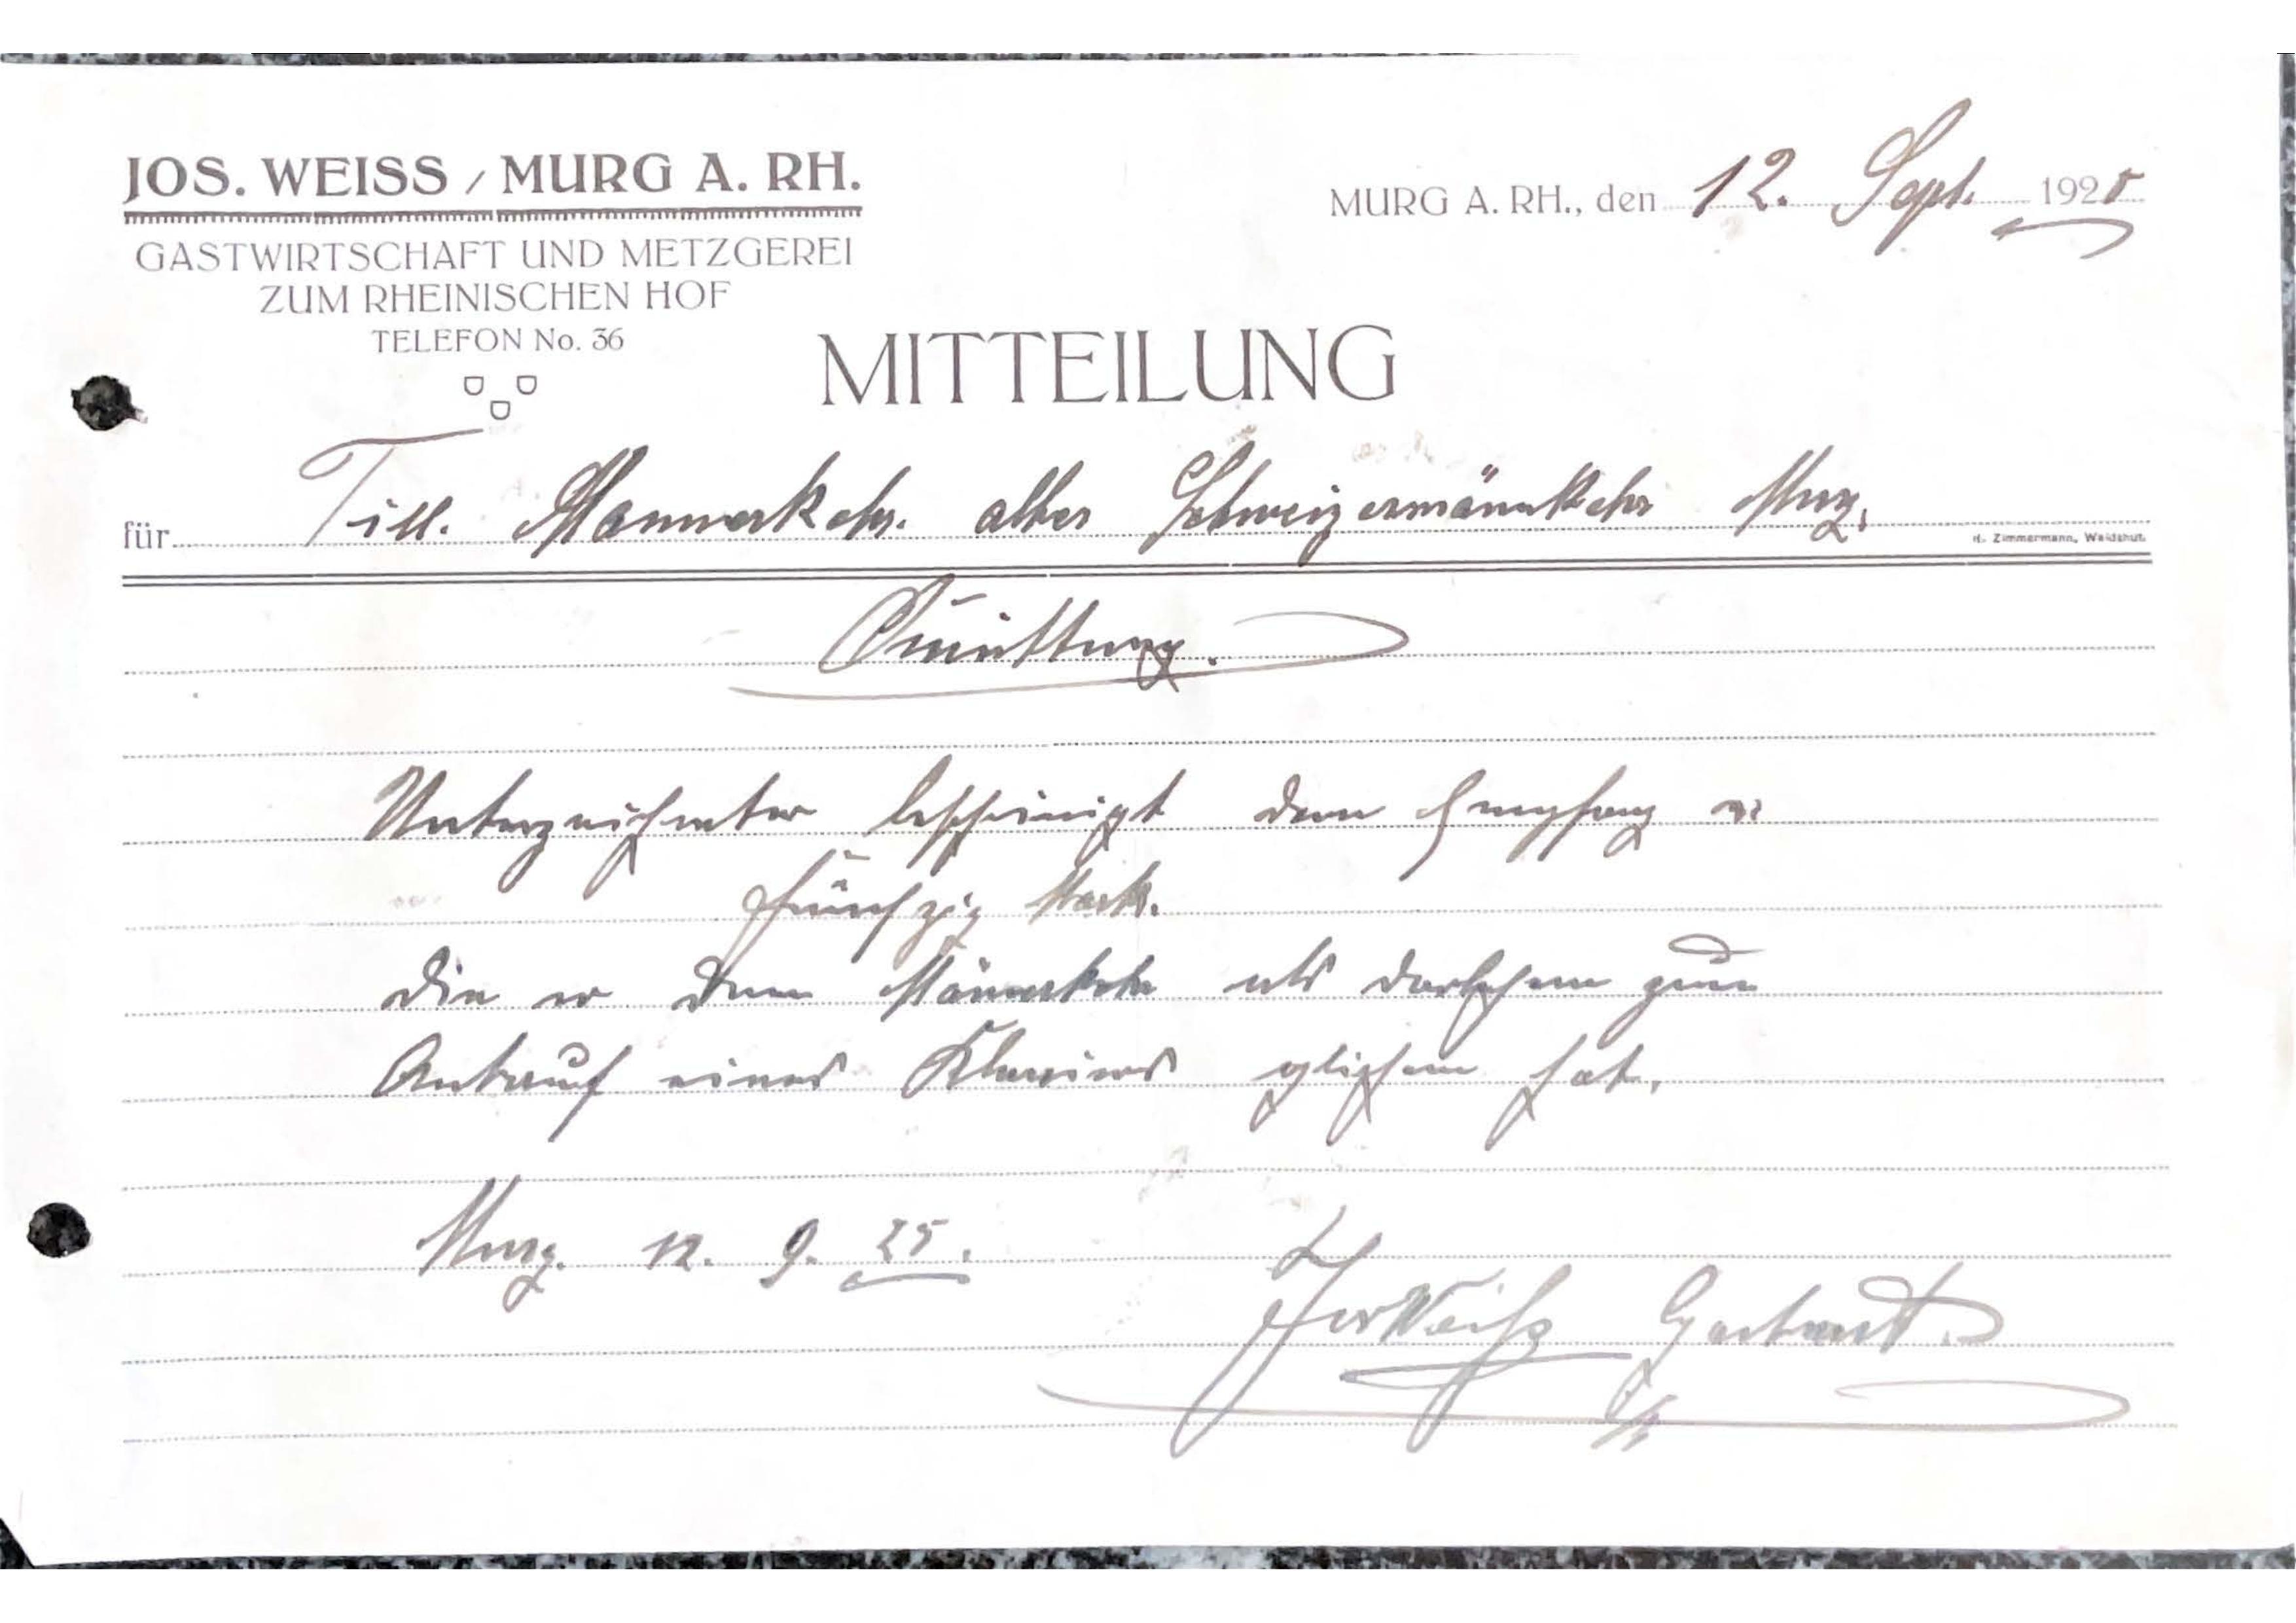 JOS. WEISS / MURG A. RH.
GASTWIRTSCHAFT UND METZGEREI
ZUM RHEINISCHEN HOF
TELEFON No. 36
MURG A. RH., den 12. Sept. 1925
MITTEILUNG
für Till. Mannerkchr. alter Murg.
H. Zimmermann, Waldshut.
Quittung.
Unterzeichneter bescheinigt den Empfang v:
fünfzig Mark.
die er dem Männerchor als Darlehen zum
Ankauf eines Klaviers gliehen hat.
Murg. 12. 9. 25.
Jos Weiß Gastwirt.